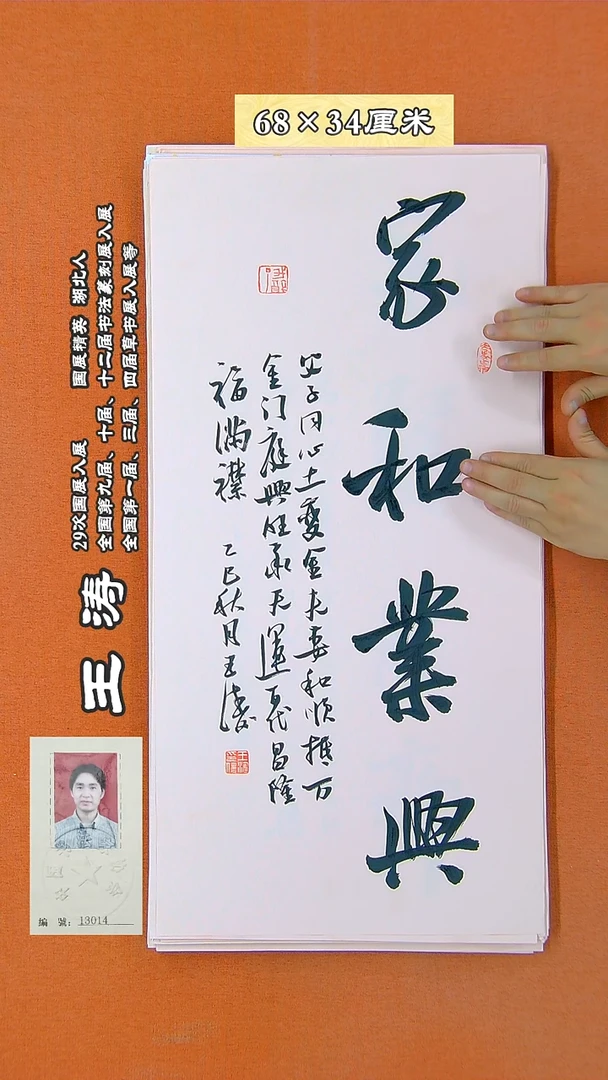 68×34厘米
家和業興
父子同心土變金夫妻和順抵万
金门庭興旺承天運百代昌隆
福满襟 乙巳秋月王濤
国展精英 湖北人
29次国展入展
全国第九届、十届、十二届书法篆刻展入展
全国第一届、三届、四届草书展入展等
王涛
编號：13014